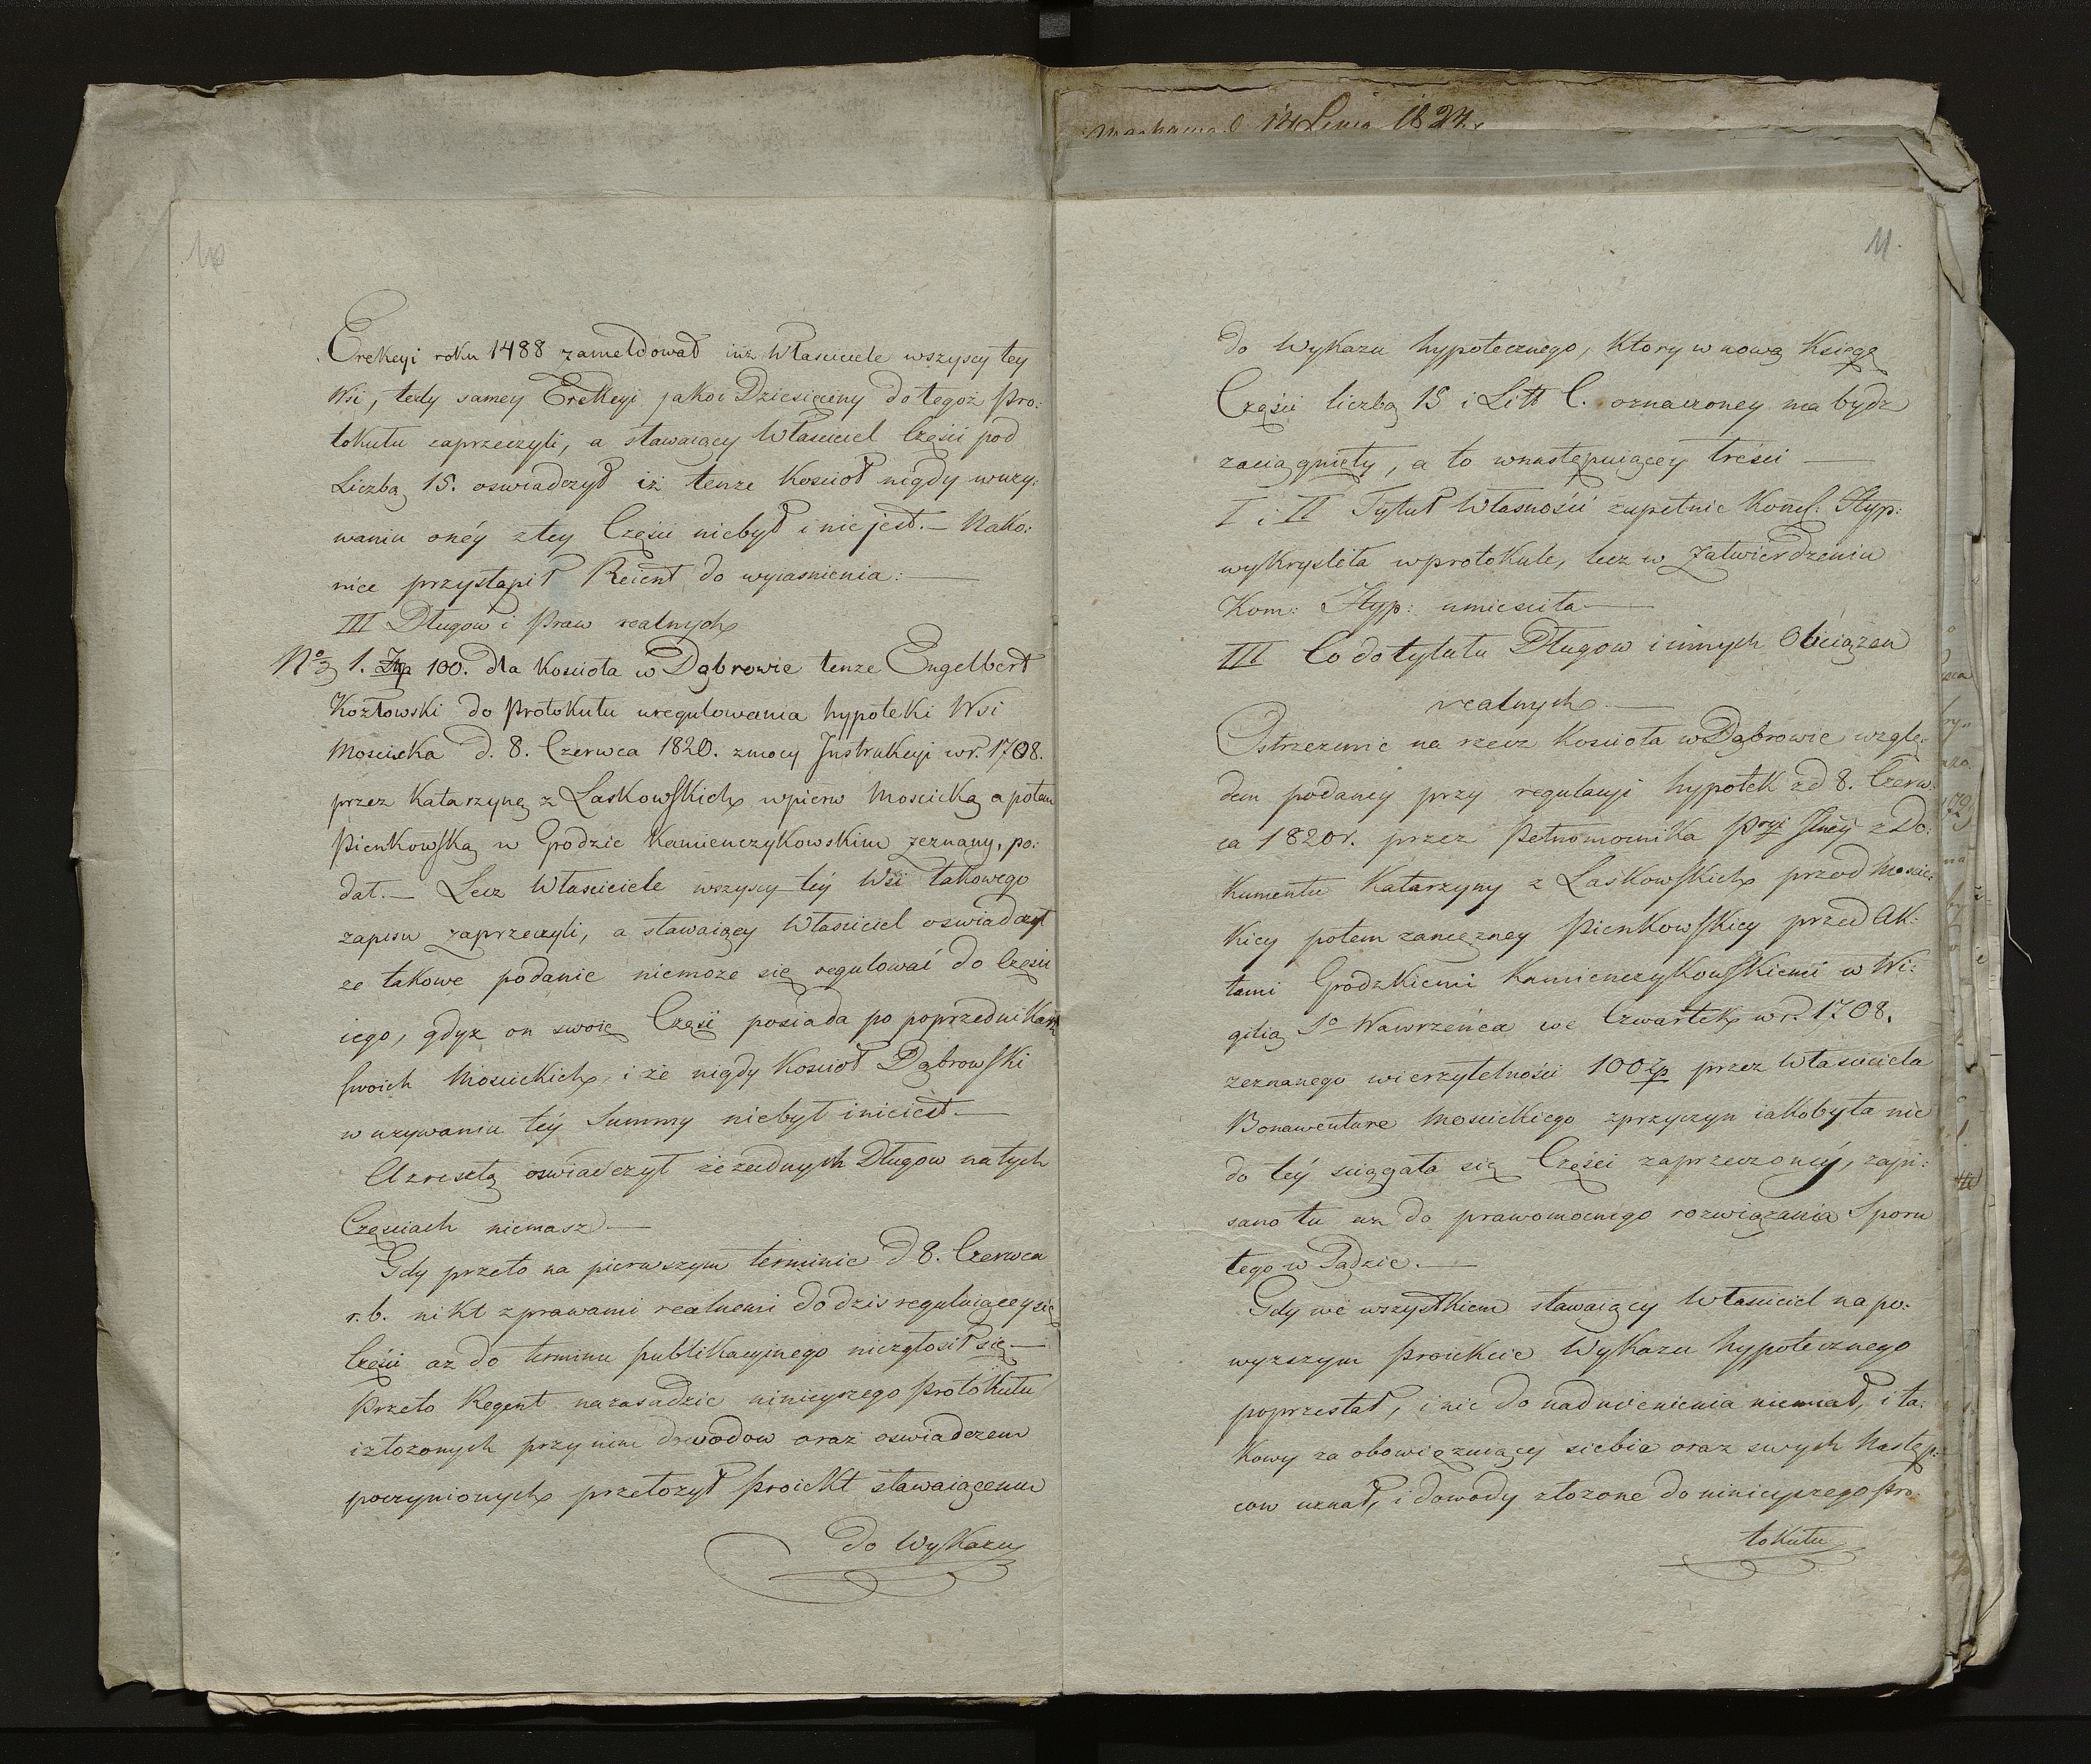 10
Erekcyi roku 1488 zameldował iuż Właściciele wszyscy tey
Wsi, tedy samey Erekcyi jako i Dziesięciny do tegoż Pro:
tokułu zaprzeczyli, a stawaiący Właściciel Części pod
Liczbą 15. oswiadczył iż tenże Kościoł nigdy wuzy:
waniu onéy z tey Części niebył i nie jest. — Nako:
niec przystąpił Reient do wyiasnienia: —
III Długow i Praw realnych
No 3 1. Złp 100. dla Kościoła w Dąbrowie tenże Engelbert
Kozłowski do Protokułu uregulowania hypoteki Wsi
Moscicka d. 8. Czerwca 1820. zmocy Instrukcyi w r. 1708.
przez Katarzynę z Laskowskich wpierw Moscicką a potem
Pienkowską w Grodzie Kamienczykowskim zeznany, po:
dał. — Lecz Właściciele wszyscy téy Wsi takowego
zapisu zaprzeczyli, a stawaiący Właściciel oswiadczył
że takowe podanie niemoże się regulować do Części
iego, gdyż on swoię Część posiada po poprzednikach
swoich Moscickich, i że nigdy Kościoł Dąbrowski
w uzywaniu téy Summy niebył i nieiest —
A zresztą oswiadczył że żadnych Długow na tych
Częsciach niemasz —
Gdy przeto na pierwszym terminie d 8. Czerwca
r. b. nikt z prawami realnemi do dzis reguluiącey się
Części aż do terminu publikacyinego niezgłosił się —
Przeto Regent na zasadzie ninieyszego Protokułu
i złożonych przy nim dowodow oraz oswiadczeń
poczynionych przełożył Proiekt stawaiącemu
do Wykazu
1824.
11.
do Wykazu hypotecznego, ktory w nową Księgę
Części liczbą 15 i Litt C. oznaczoney ma bydz
zaciągnięty, a to wnastępuiącey treści —
I i II Tytuł Własności zupełnie Kom: Hyp:
wykryslita wprotokule, lecz w Zatwierdzeniu
Kom: Hyp: umiesciła —
III Co do tytułu Długow i innych Obciążen
realnych —
Ostrzeżenie na rzecz Kościoła w Dąbrowie wzglę:
dem podaney przy regulacyi hypotek zd 8. Czerw:
ca 1820 r. przez Pełnomocnika z Do:
kumentu Katarzyny z Laskowskich przod Moscic:
kiey potem zamężney Pienkowskiey przed Ak:
tami Grodzkiemi Kamienczykowskiemi w Wi:
gilią So Wawrzeńca we Czwartek w r. 1708.
zeznanego wierzytelności 100 złp przez Właściciela
Bonawenture Moscickiego zprzyczyn iakoby ta nie
do téy sciągała się Części zaprzeczonéy, zapi:
sano tu aż do prawomocnego rozwiązania Sporu
tego w Sądzie. —
Gdy we wszystkiem stawaiący Właściciel na po:
wyższym Proiekcie Wykazu hypotecznego
poprzestał, i nic do nadmienienia niemiał, i ta:
kowy za obowięzuiący siebie oraz swych Następ:
cow uznał, i dowody złożone do ninieyszego Pro:
tokułu